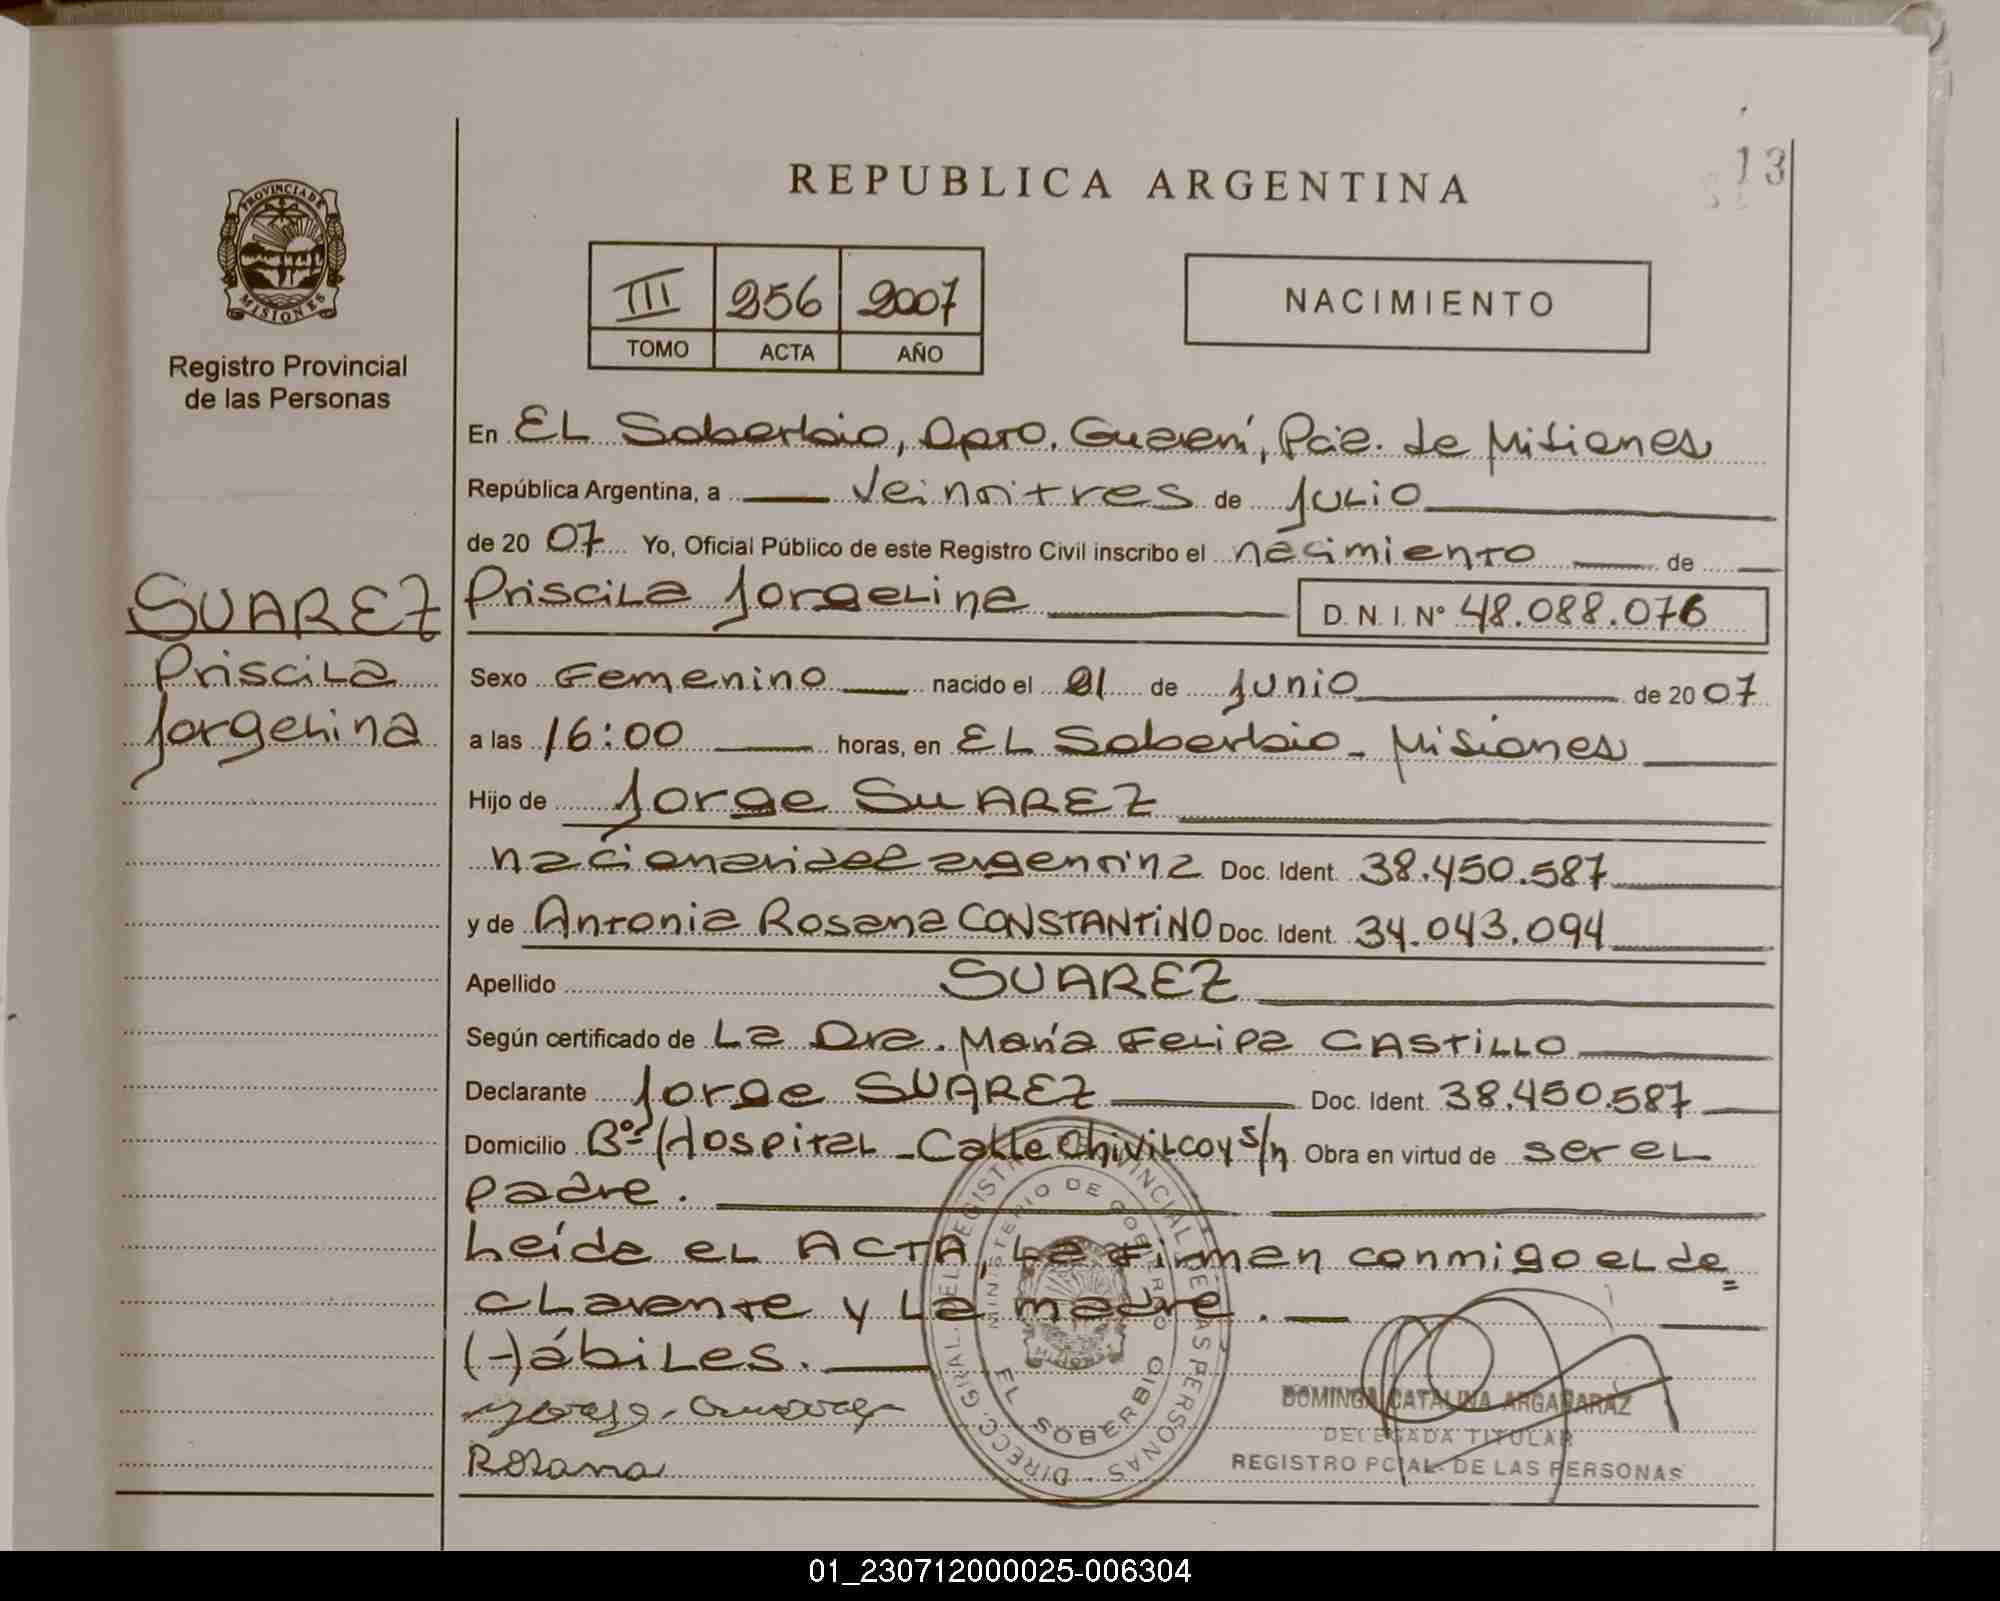 REPUBLICA ARGENTINA
13
PROVINCIA DE
MISIONES
Registro Provincial
de las Personas
III 256 2007
TOMO ACTA AÑO
NACIMIENTO
En EL Soberbio, Dpto. Guaraní, Pcia. de Misiones
República Argentina, a Veintitres de Julio
de 2007 Yo, Oficial Público de este Registro Civil inscribo el nacimiento de
SUAREZ
Priscila
Jorgelina
Priscila Jorgelina D. N. I. Nº 48.088.076
Sexo Femenino nacido el 01 de Junio de 2007
a las 16:00 horas, en EL Soberbio - Misiones
Hijo de Jorge SUAREZ
nacionalidad argentina Doc. Ident. 38.450.587
y de Antonia Rosana CONSTANTINO Doc. Ident. 34.043.094
Apellido SUAREZ
Según certificado de La Dra. María Felipa CASTILLO
Declarante Jorge SUAREZ Doc. Ident. 38.450.587
Domicilio Bº Hospital - Calle Chivilcoy s/n Obra en virtud de ser el
padre.
Leída el ACTA, La Firman conmigo el de=
clarante y La madre.
Hábiles.
Rosana
DIRECC. GRAL. DEL REGISTRO PROVINCIAL DE LAS PERSONAS
MINISTERIO DE GOBIERNO
EL SOBERBIO
DOMINGA CATALINA ARGAÑARAZ
DELEGADA TITULAR
REGISTRO PCIAL. DE LAS PERSONAS
01_230712000025-006304